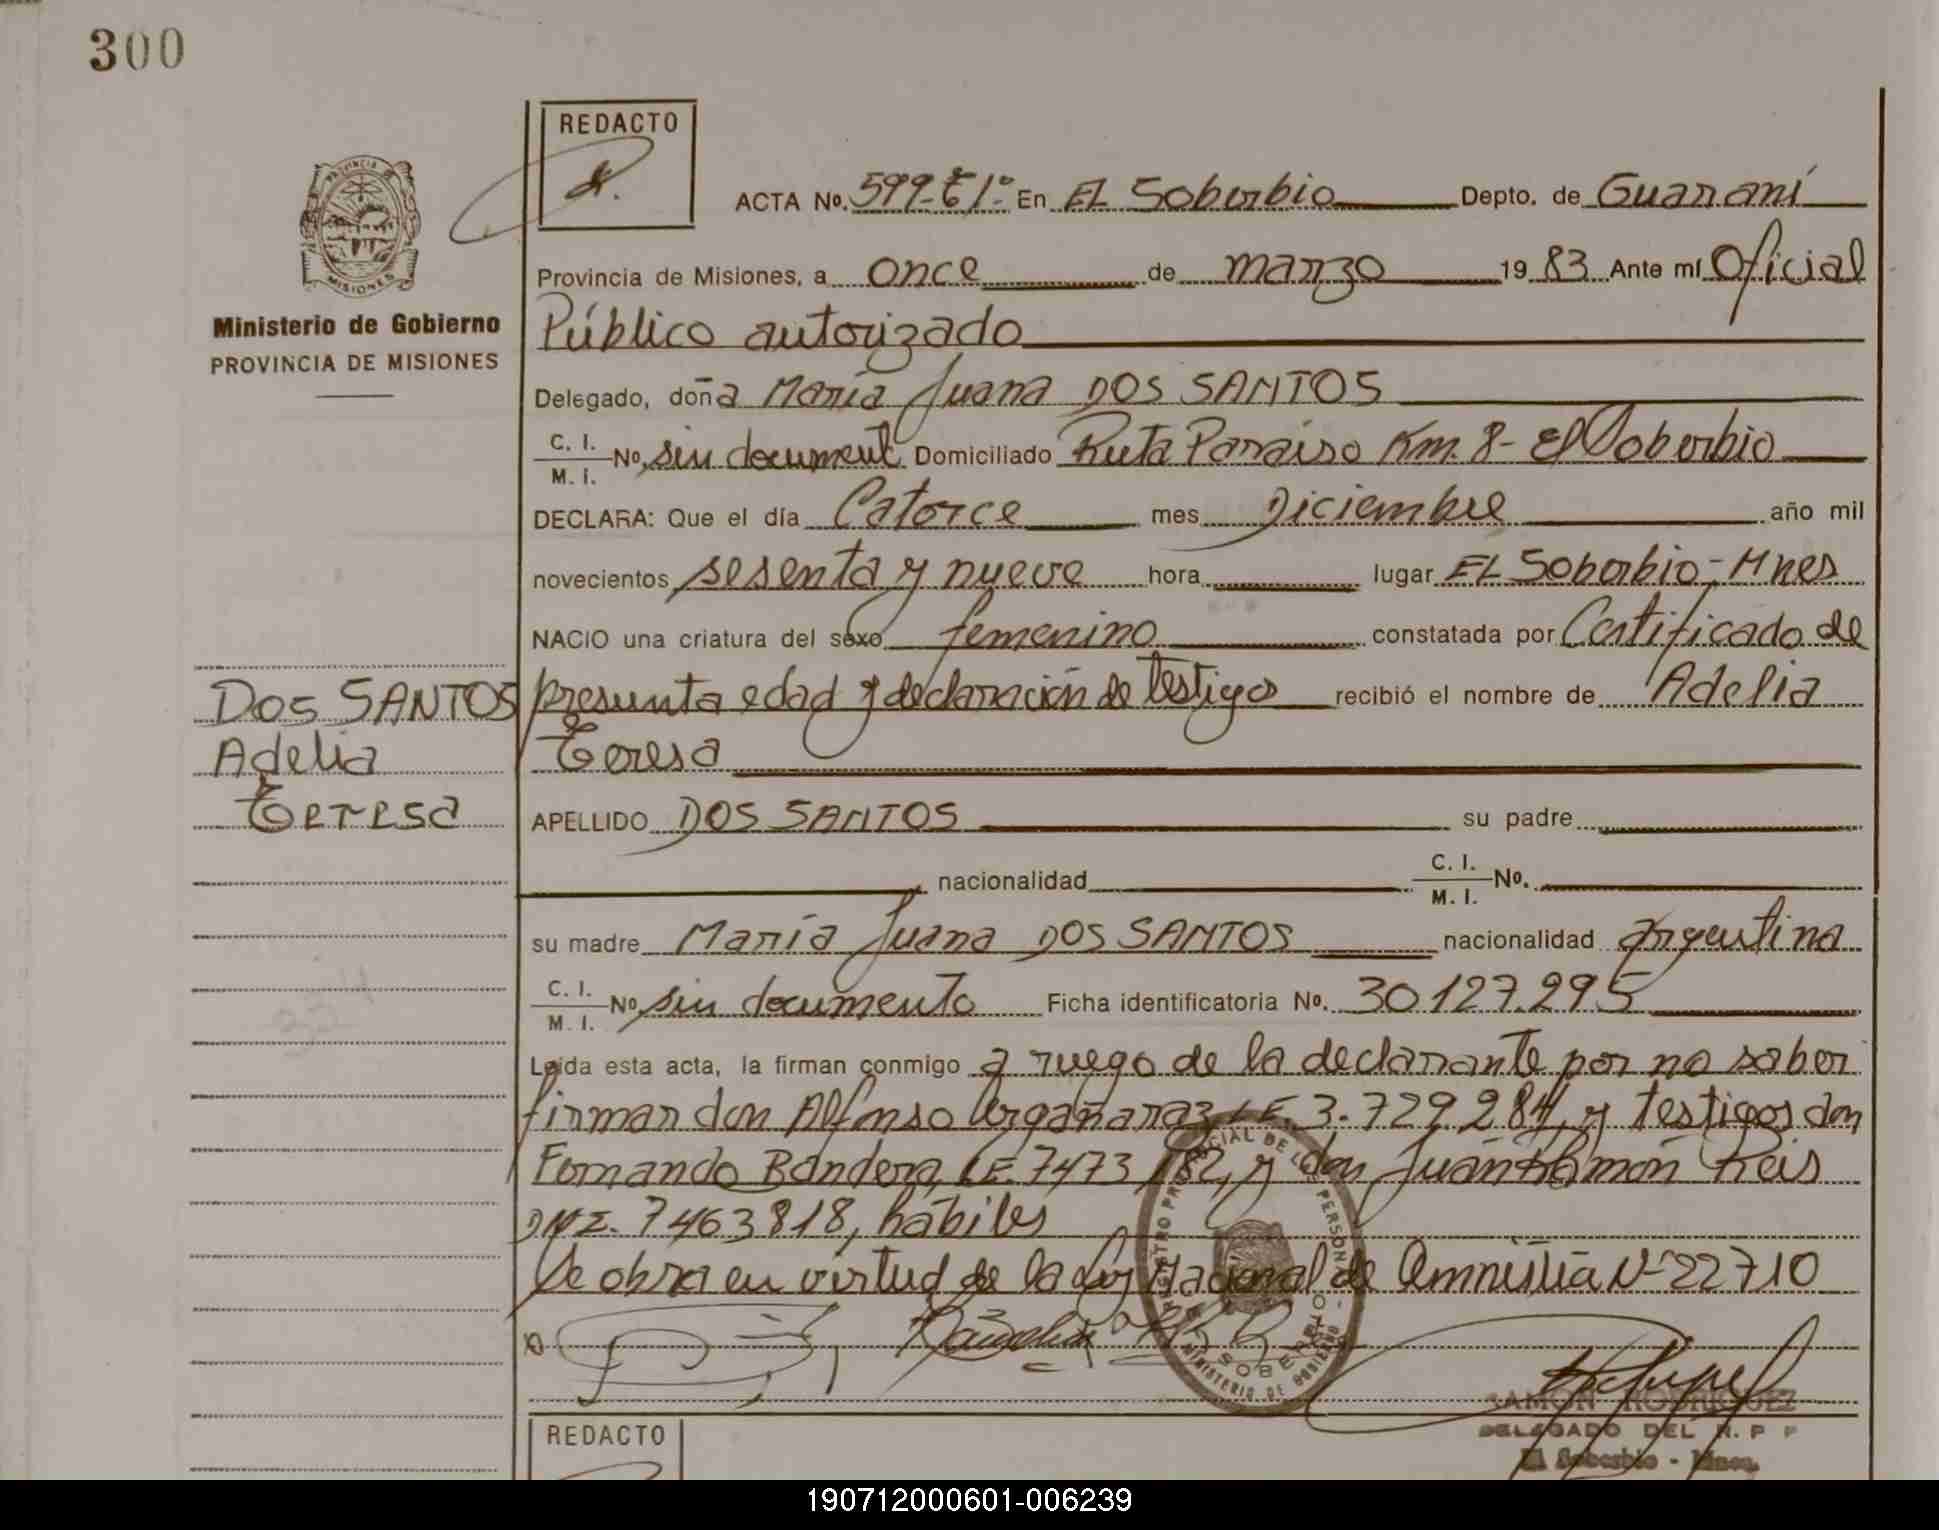 300
REDACTO
PROVINCIA DE
MISIONES
Ministerio de Gobierno
PROVINCIA DE MISIONES
ACTA Nº. 599-T1º- En EL Soberbio Depto. de Guaraní
Provincia de Misiones, a once de marzo 19 83 Ante mí Oficial
Público autorizado
Delegado, doña María Juana DOS SANTOS
C. I.
M. I. Nº. sin document Domiciliado Ruta Paraíso Km. 8- El Soberbio
DECLARA: Que el día Catorce mes Diciembre año mil
novecientos sesenta y nueve hora lugar EL Soberbio-Mnes
NACIO una criatura del sexo femenino constatada por Certificado de
presunta edad y declaración de testigos recibió el nombre de Adelia
Teresa
APELLIDO DOS SANTOS su padre
nacionalidad C. I.
M. I. Nº.
su madre María Juana DOS SANTOS nacionalidad argentina
C. I.
M. I. Nº. sin documento Ficha identificatoria Nº. 30.127.295
Leida esta acta, la firman conmigo a ruego de la declarante por no saber
firmar don Alfonso Argañaraz, L.E. 3.729.284, y testigos don
Fernando Bandera, L.E. 7473182, y don Juan Ramón Reis
DNI. 7463818, hábiles
Se obra en virtud de la Ley Nacional de Amnistía Nº 22710
DOS SANTOS
Adelia
Teresa
334
REGISTRO PROVINCIAL DE LAS PERSONAS
SOBERBIO
MINISTERIO DE GOBIERNO
RAMON RODRIGUEZ
DELEGADO DEL R. P P
El Soberbio - Mnes.
REDACTO
190712000601-006239